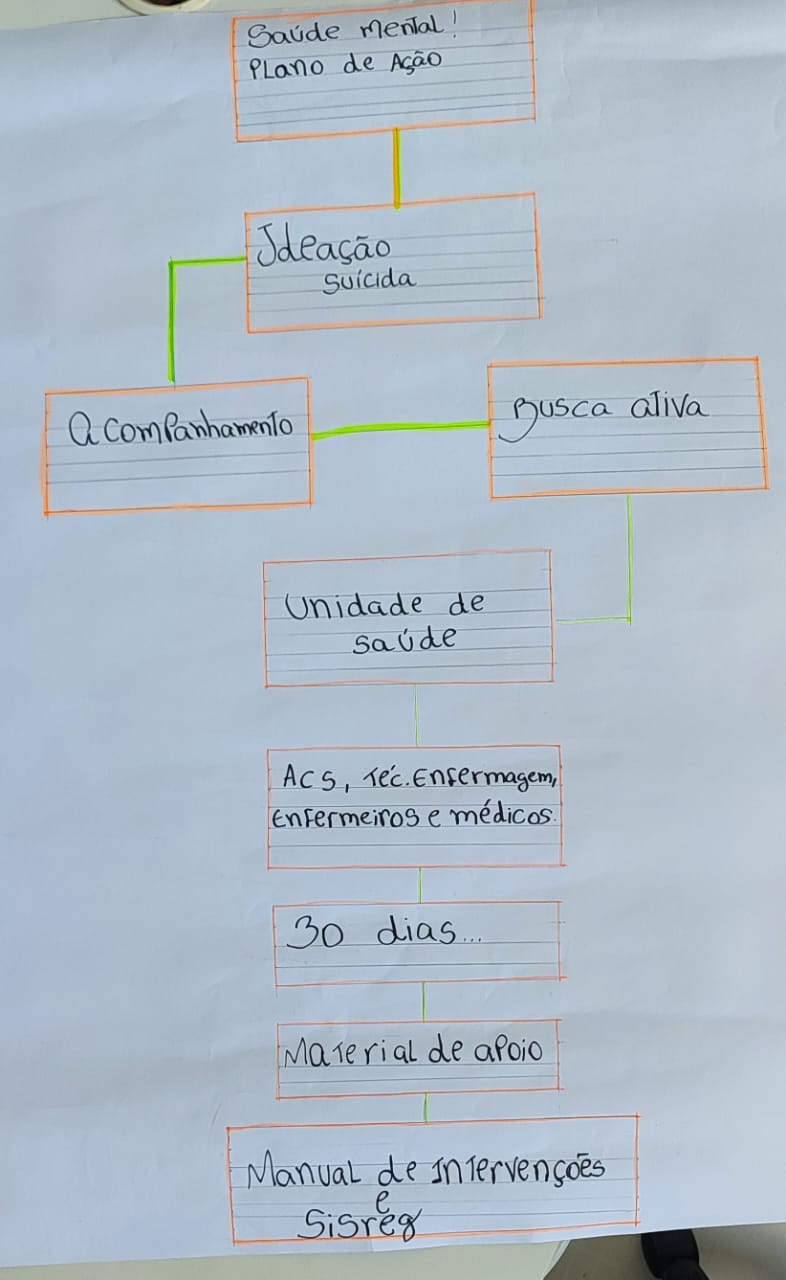 Saúde mental!
Plano de Ação
Ideação
suícida
Acompanhamento
Busca ativa
Unidade de
saúde
ACS, Téc. Enfermagem,
Enfermeiros e médicos.
30 dias...
Material de apoio
Manual de Intervenções
e
Sisreg